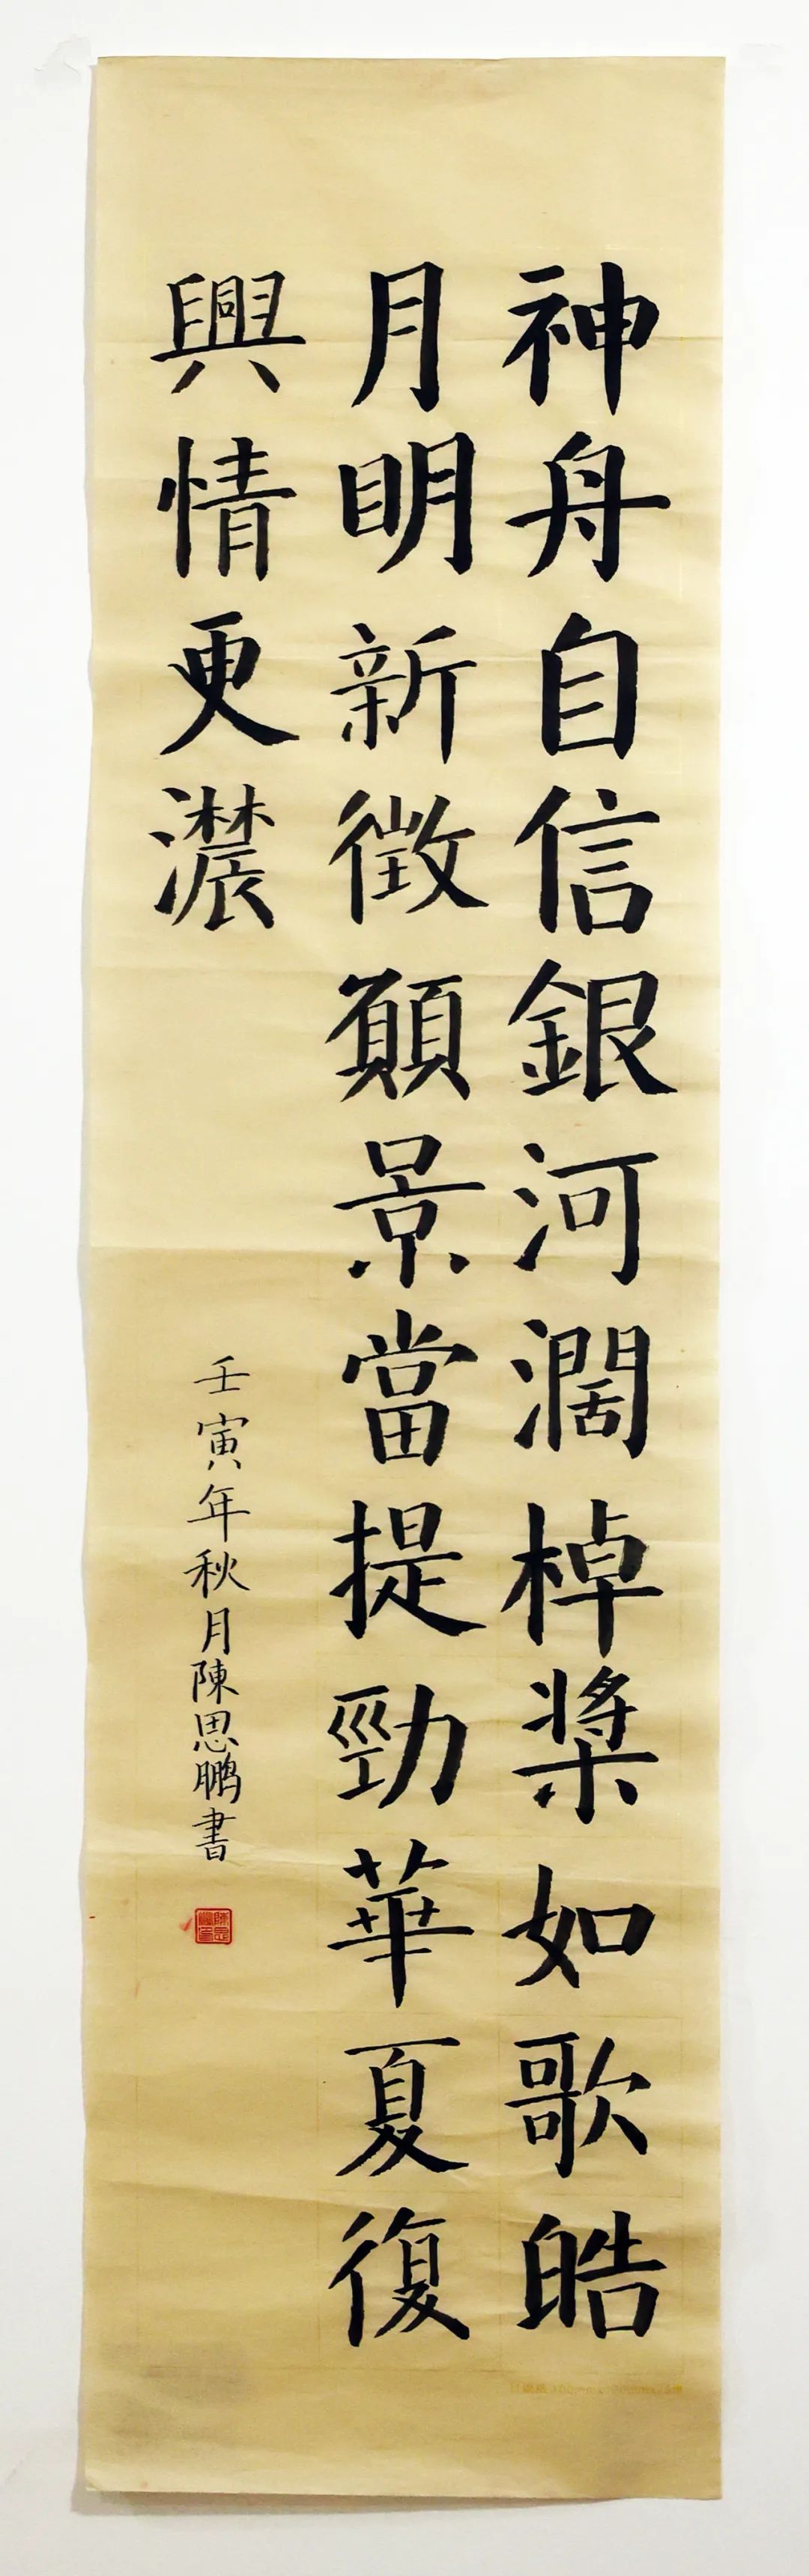 神舟自信銀河濶棹槳如歌皓
月明新徵願景當提勁華夏復
興情更濃
壬寅年秋月陳思鹏書